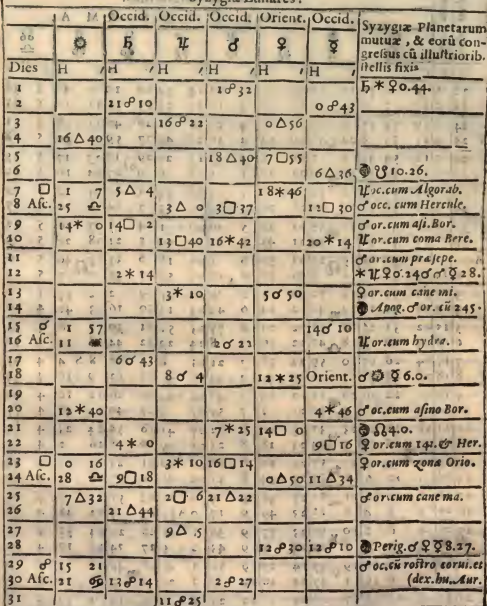 Syzygiæ Lunares.
A M Occid. Occid. Occid. Orient. Occid. Syzygiæ Planetarum
☍ ♎ ☼ ♄ ♃ ♂ ♀ ☿ mutuæ, & eorū con-
gressus cū illustriorib.
Dies H ′ H ′ H ′ H ′ H ′ H ′ stellis fixis
1 1☍32 ♄✶♀0.44.
2 21☍10 0☍43
3 16☍22 0△56
4 16△40
5 18△40 7□55
6 6△36 ☋10.26.
7 □ 1 7 5△4 18✶46 ♃oc.cum Algorab.
8 Asc. 25 ♎ 3△0 3□37 12□30 ♂ occ. cum Hercule.
9 14✶0 14□2 ♂ or.cum asi.Bor.
10 13□40 16✶42 20✶14 ♃ or.cum coma Bere.
11 ♂ or.cum præsepe.
12 2✶14 ✶♃♀0.24♂♂☿28.
13 3✶10 5☌50 ♀or.cum cane mi.
14 Apog.♂or.cū 245.
15 ☌ 1 57 14☌10
16 Asc. 11 ♒ 2☌22 ♃ or.cum hydra.
17 6☌43
18 8☌4 12✶25 Orient. ☌☼☿6.0.
19
20 12✶40 4✶46 ♂oc.cum asino Bor.
21 7✶25 14□0 ☊4.0.
22 4✶0 9□16 ♀or.cum 141.& Her.
23 □ 0 16 3✶10 16□14 ♀or.cum zona Orio.
24 Asc. 28 ♎ 9□18 0△50 11△34
25 7△32 2□6 21△22 ♂or.cum cane ma.
26 21△44
27 9△5
28 12☍30 12☍10 Perig.☌♀☿8.27.
29 ☍ 15 21 ♂oc.cū rostro corui.et
30 Asc. 21 ♋ 13☍14 2☍27 (dex.hu.Aur.
31 11☍25